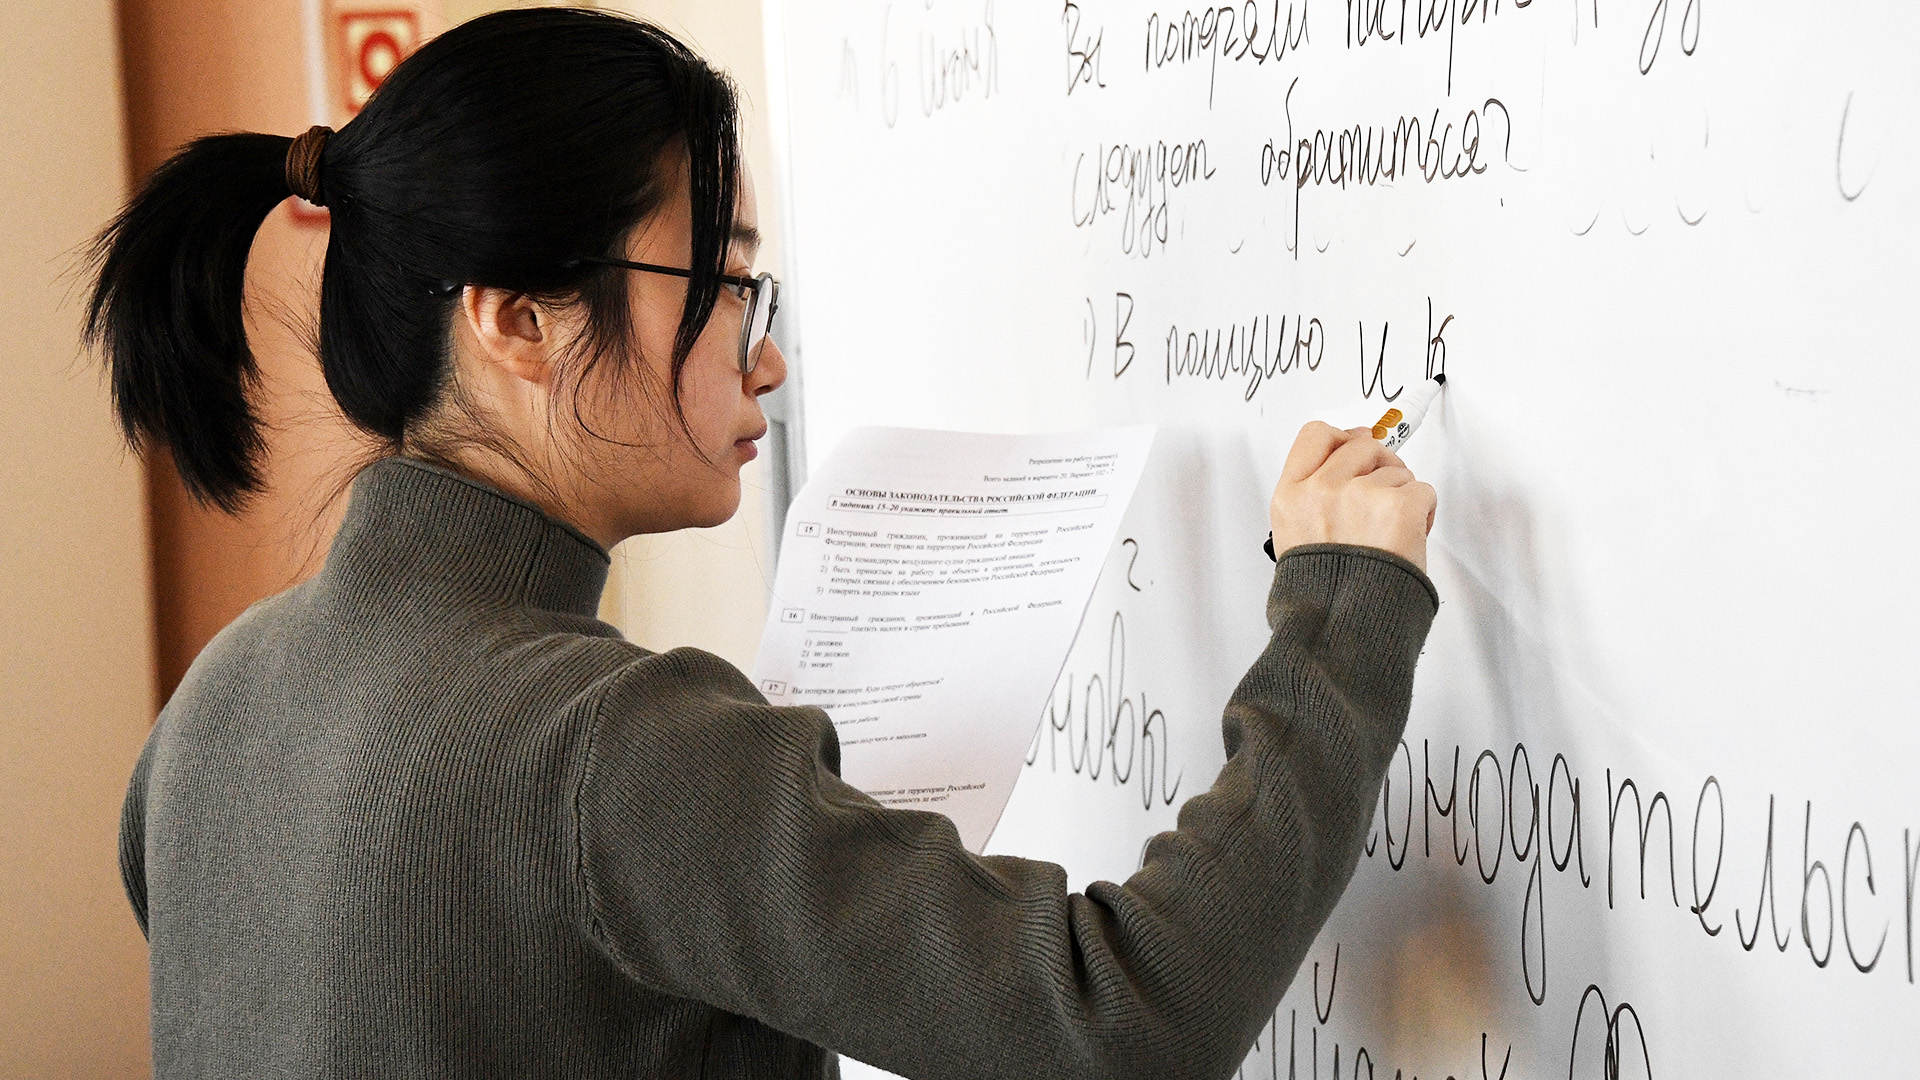 6 июня
Вы потеряли паспорт. Куд
следует обратиться?
1) В полицию и к
?
новы
онодательст
Разрешение на работу (патент).
Уровень 1.
Всего заданий в варианте 20. Вариант 102 - 7
ОСНОВЫ ЗАКОНОДАТЕЛЬСТВА РОССИЙСКОЙ ФЕДЕРАЦИИ
В заданиях 15–20 укажите правильный ответ.
15 Иностранный гражданин, проживающий на территории Российской
Федерации, имеет право на территории Российской Федерации
1) быть командиром воздушного судна гражданской авиации
2) быть принятым на работу на объекты и организации, деятельность
которых связана с обеспечением безопасности Российской Федерации
3) говорить на родном языке
16 Иностранный гражданин, проживающий в Российской Федерации,
платить налоги в стране пребывания.
1) должен
2) не должен
3) может
17 Вы потеряли паспорт. Куда следует обратиться?
и консульство своей страны
работы
получить и заполнить
на территории Российской
ответственность за него?